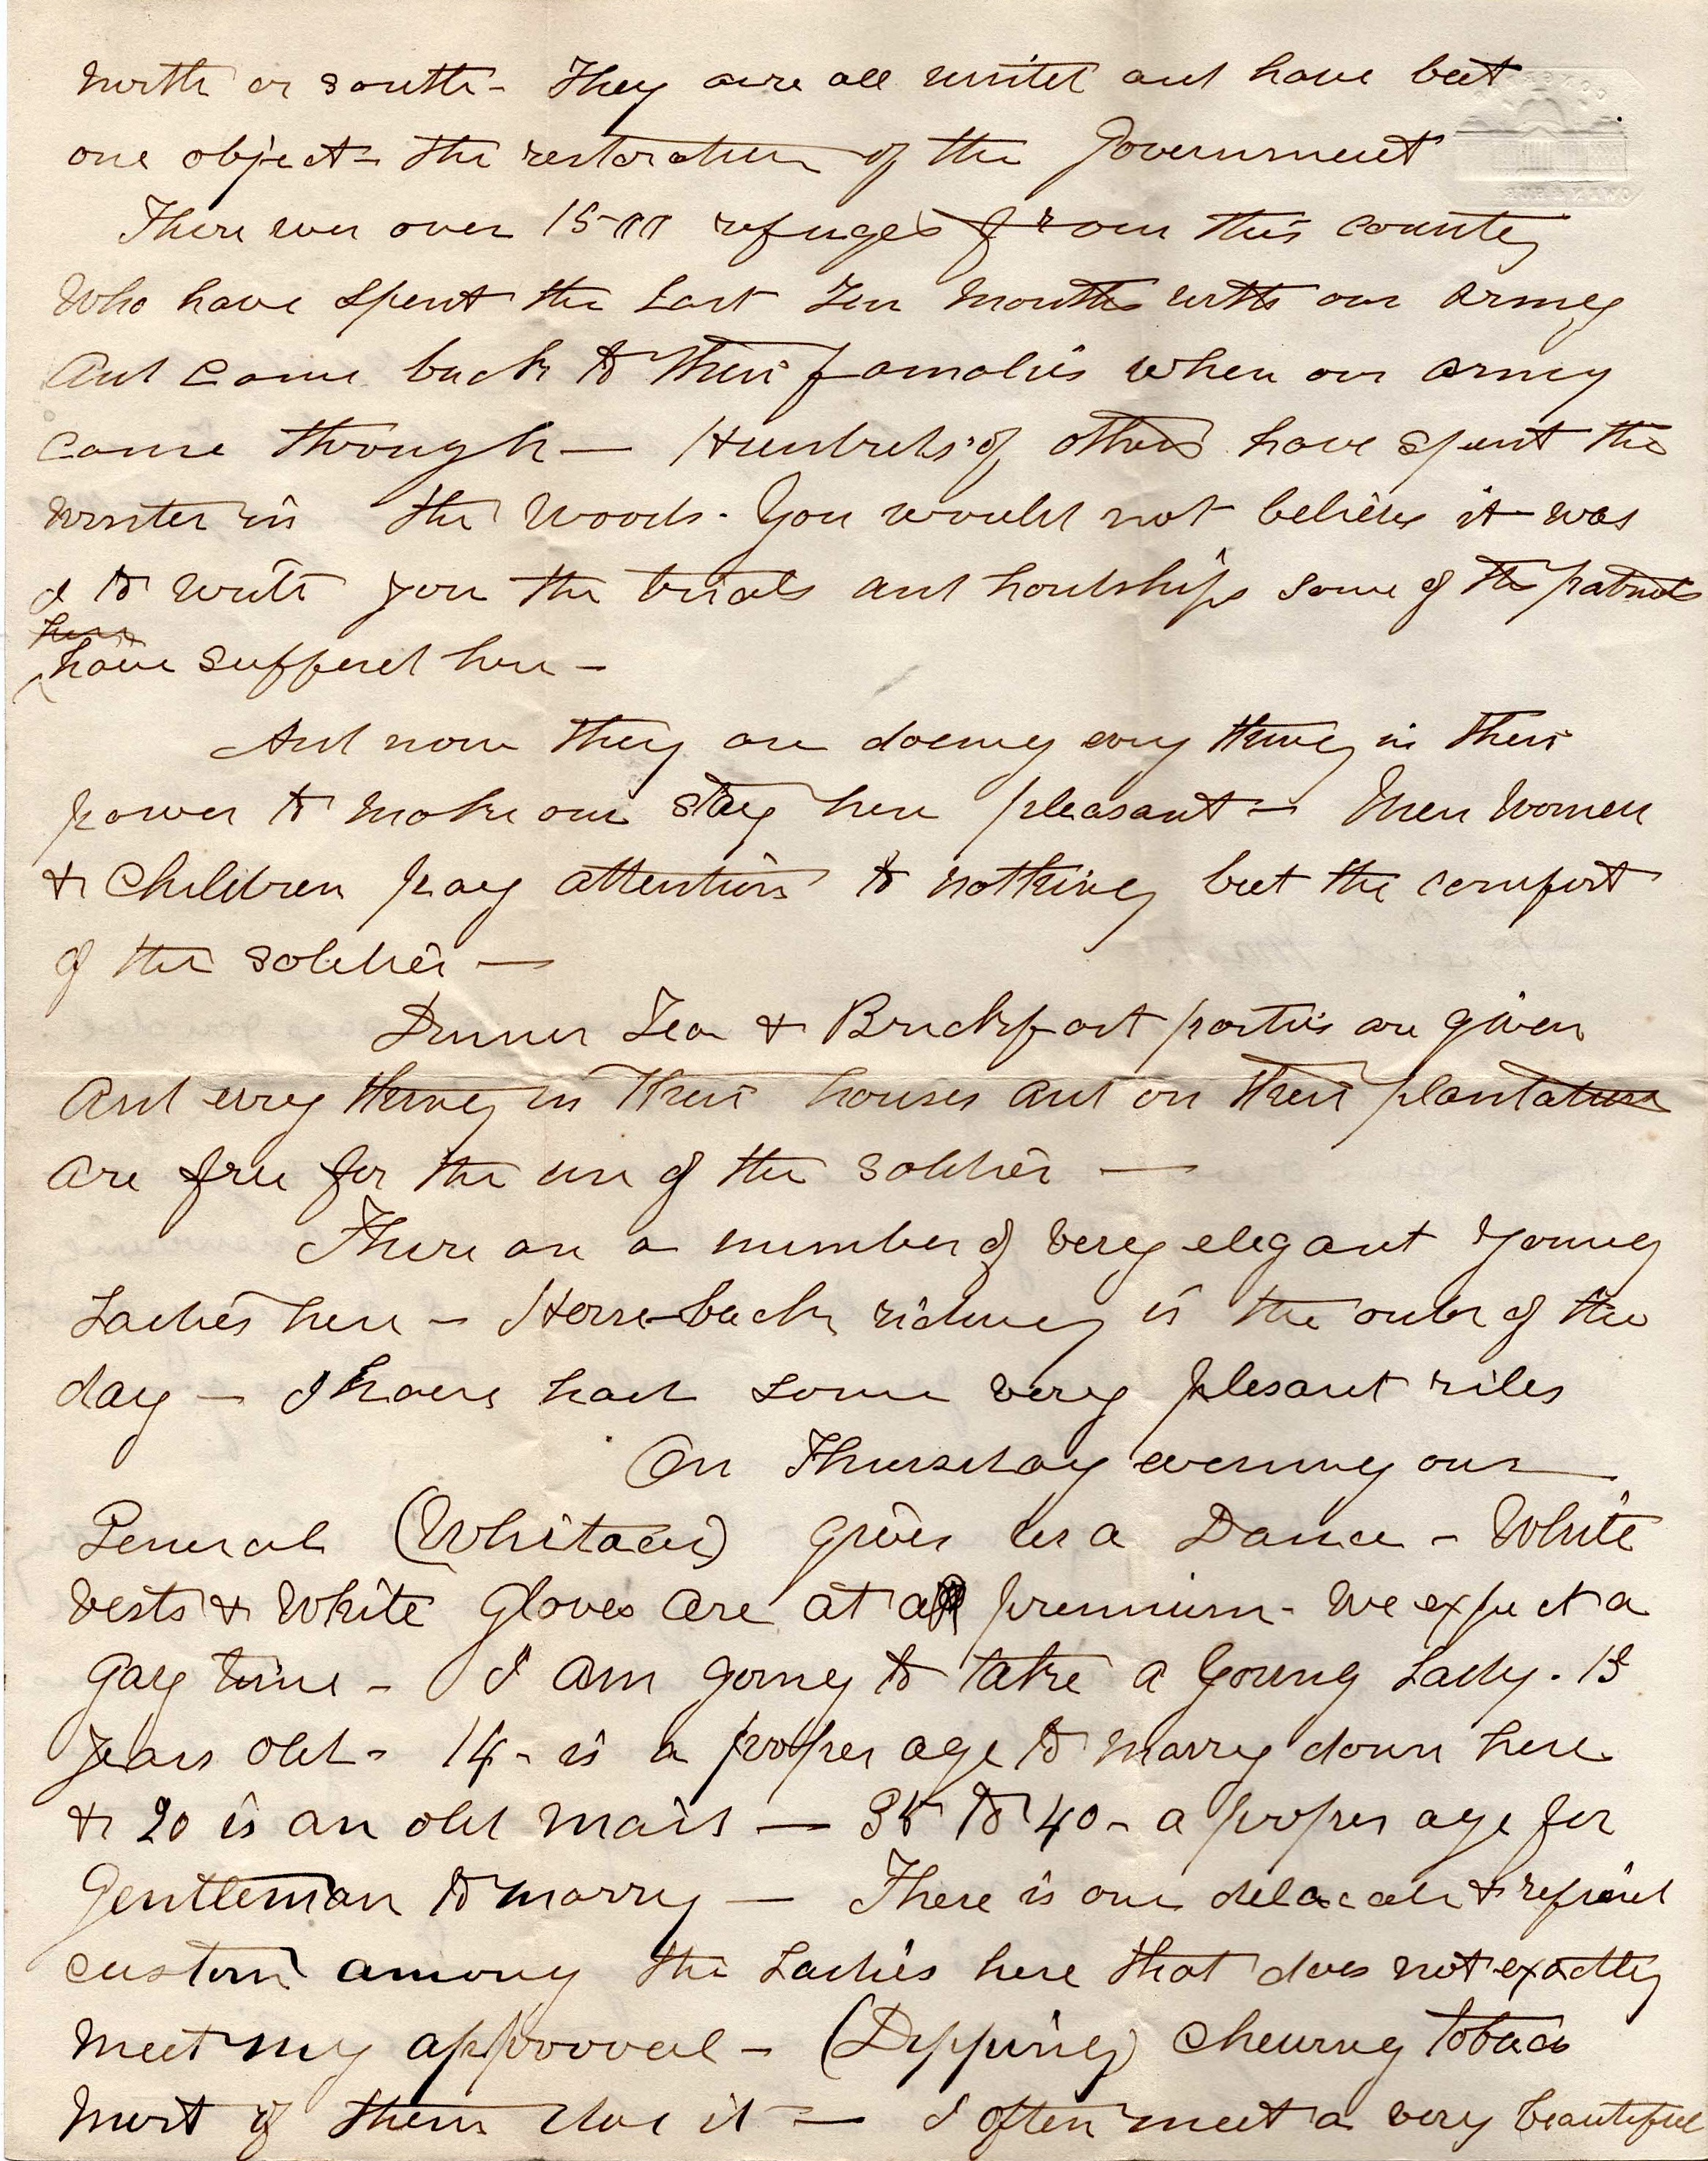 North or south - They are all united and have but
one object - the restoration of the Government
There were over 1500 refuges from this county
Who have spent the Last Ten Months with our Army
And came back to their famolies when our army
came through — Hundreds of others have spent the
winter in the Woods. You would not believe it was
I to write you the trials and hardships some of the patriots
have suffered here -
And now they are doeing evry thing in their
power to make our stay here pleasant - Men Women
& Children pay attention to nothing but the comfort
of the soldier —
Dinner Tea & Breckfast parties are given
And evry thing in their houses and on their plantations
are free for the use of the soldier —
There are a number of very elegant young
Ladies here - Horse-back riding is the order of the
day - I have had some very plesant rides
On Thursday evening our
General (Whitacer) gives us a Dance - White
vests & White Gloves are at a premium - We expect a
Gay time - I am going to take a Young Lady. 13
years old - 14 - is a propper age to marry down here
& 20 is an old maid — 35 to 40 - a propper age for
Gentleman to marry — There is one delacate & refined
custom among the Ladies here that does not exactly
meet my approoval - (Dipping) chewing Tobaco
Most of them does it — I often meet a very beautiful